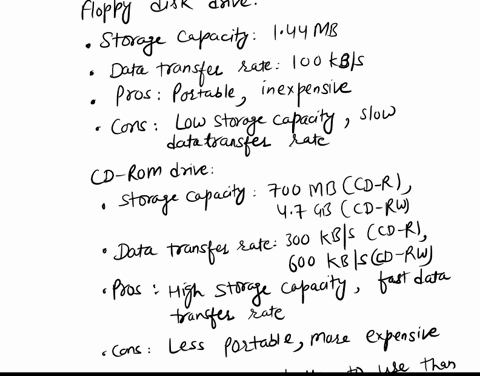 floppy disk drive:
• Storage capacity: 1.44 MB
• Data transfer rate: 100 kB/s
• Pros: Portable, inexpensive
• Cons: Low storage capacity, slow
data transfer rate
CD-Rom drive:
• Storage capacity: 700 MB (CD-R),
4.7 GB (CD-RW)
• Data transfer rate: 300 kB/s (CD-R),
600 KB/s (CD-RW)
• Pros: High storage capacity, fast data
transfer rate
• Cons: Less Portable, more expensive
to use than